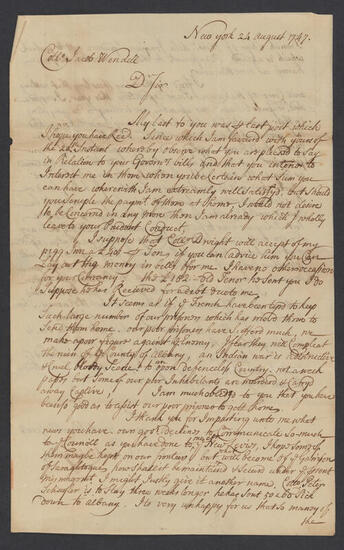 New York 24 August 1747.
Coll.º Jacob Wendell
D.r Sir
My last to you was  last post which
I hope you have Rec.d Since which I am favour'd with yours of
the  Instant whereby observe what you are pleased to Say
in Relation to your Governm.ts bills and that you intend to
Interest me in them when you be Certain what Sum you
can have wherewith I am extreamly well Satisfyd, but Should
you Scruple the paym.t of them at home, I would not desire
to be Concern'd in any more then I am already which I wholly
leave to your Prudent Conduct.
I Suppose that Coll.º Dwight will accept of my
 on  Son, if you can advise him you can
Lay out that money in bills for me I have no other occasion
for your Currency  Tenor he Sent you I do
Suppose he has Received
It Seems as if  French have been  to keep
Such large number of our prisoners which has  them to
Send them home. our poor prisoners have Suffer'd much, we
make a poor figure against  Enemy. I fear they will Compleat
the ruin of  County of Albany, an Indian war is destructive
& Cruel bloody  upon  Defenceless Country. not a week
passes but Some of our poor Inhabitants are murdered & Carry'd
away Captive, I am much obliged to you that you have
been so good as to assist our poor prisoners to gett home.
I thank you for Imparting unto me what
news you have. our good  Communicate So much
to  as you have done to me
them maybe kept on our frontiers but will become of  Garrison
of Saraghtogue, how Shall it be maintained & Secur'd under  Great
Mismanagm.t I might Justly give it another name. Coll.º Peter
Schuyler is to Stay three weeks longer he has Sent  Sick
down to albany. Its very unhappy for us that So many of
the